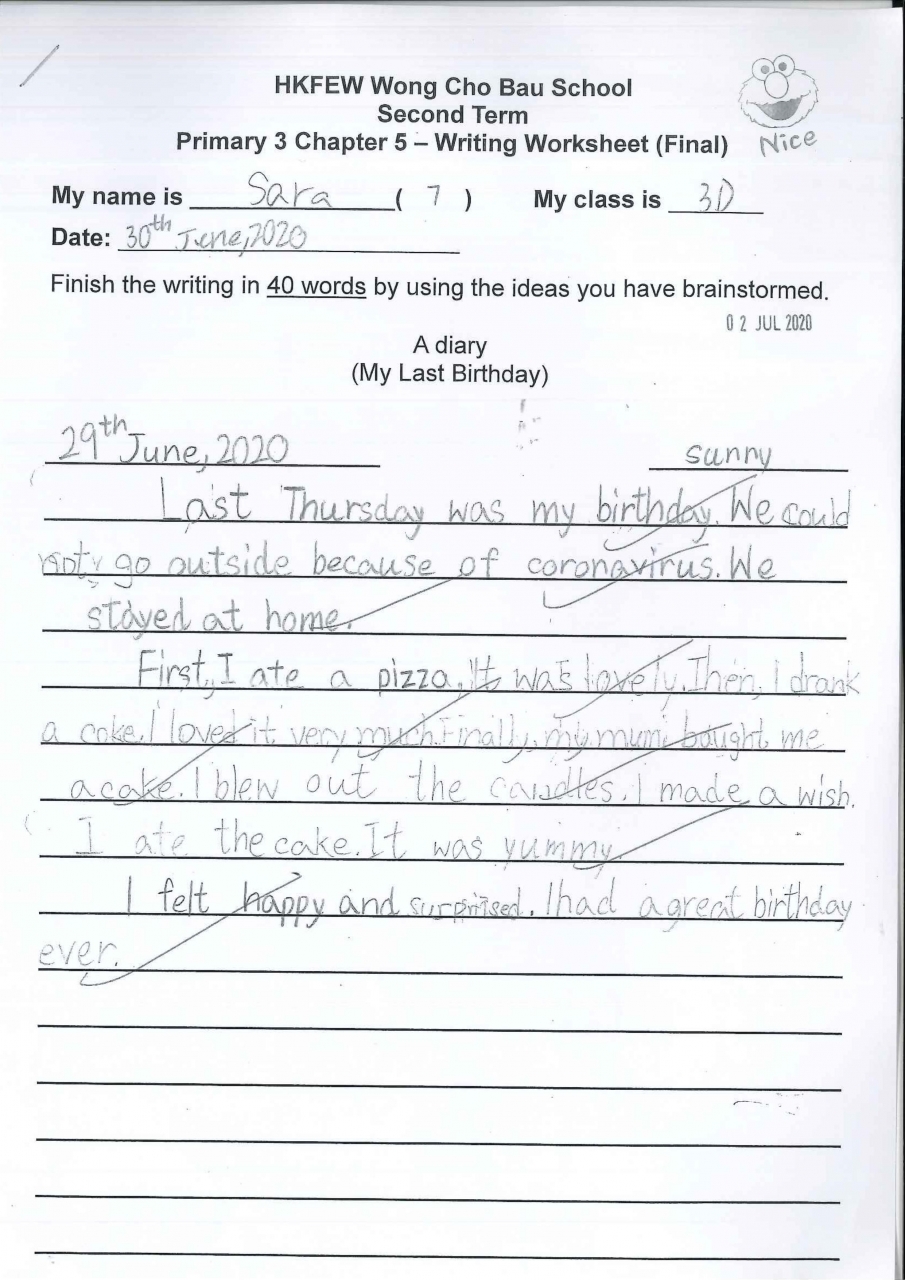 HKFEW Wong Cho Bau School
Second Term
Primary 3 Chapter 5 – Writing Worksheet (Final)
Nice
My name is Sara ( 7 ) My class is 3D
Date: 30th June, 2020
Finish the writing in 40 words by using the ideas you have brainstormed.
02 JUL 2020
A diary
(My Last Birthday)
29th June, 2020 sunny
Last Thursday was my birthday. We could
not go outside because of coronavirus. We
stayed at home.
First, I ate a pizza. It was lovely. Then, I drank
a coke. I loved it very much. Finally, my mum bought me
a cake. I blew out the candles. I made a wish.
I ate the cake. It was yummy.
I felt happy and surprised. I had a great birthday
ever.